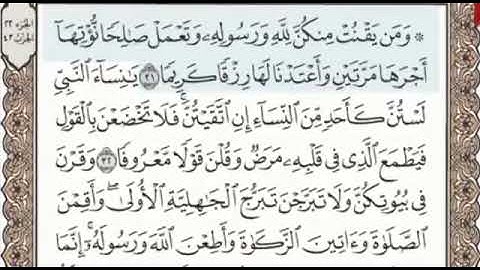 الجزء ٢٢
الحزب ٤٣
۞ وَمَن يَقْنُتْ مِنكُنَّ لِلَّهِ وَرَسُولِهِۦ وَتَعْمَلْ صَٰلِحًا نُّؤْتِهَآ
أَجْرَهَا مَرَّتَيْنِ وَأَعْتَدْنَا لَهَا رِزْقًا كَرِيمًا ٣١ يَٰنِسَآءَ ٱلنَّبِيِّ
لَسْتُنَّ كَأَحَدٍ مِّنَ ٱلنِّسَآءِ إِنِ ٱتَّقَيْتُنَّ فَلَا تَخْضَعْنَ بِٱلْقَوْلِ
فَيَطْمَعَ ٱلَّذِي فِي قَلْبِهِۦ مَرَضٌ وَقُلْنَ قَوْلًا مَّعْرُوفًا ٣٢ وَقَرْنَ
فِي بُيُوتِكُنَّ وَلَا تَبَرَّجْنَ تَبَرُّجَ ٱلْجَٰهِلِيَّةِ ٱلْأُولَىٰ وَأَقِمْنَ
ٱلصَّلَوٰةَ وَءَاتِينَ ٱلزَّكَوٰةَ وَأَطِعْنَ ٱللَّهَ وَرَسُولَهُۥٓ إِنَّمَا